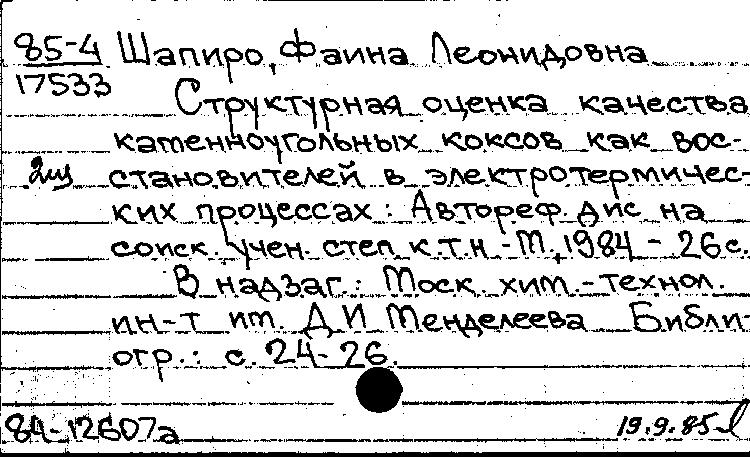 85-4 Шапиро, Фаина Леонидовна
17533
Структурная оценка качества
каменноугольных коксов как вос-
2 становителей в электротермичес-
ких процессах: Автореф. дис на
соиск. учен. степ к.т.н.-М., 1984 - 26 с.
В надзаг.: Моск. хим.-технол.
ин-т им. Д И Менделеева Библи-
огр.: с. 24-26.
84-12607а 19.9.85